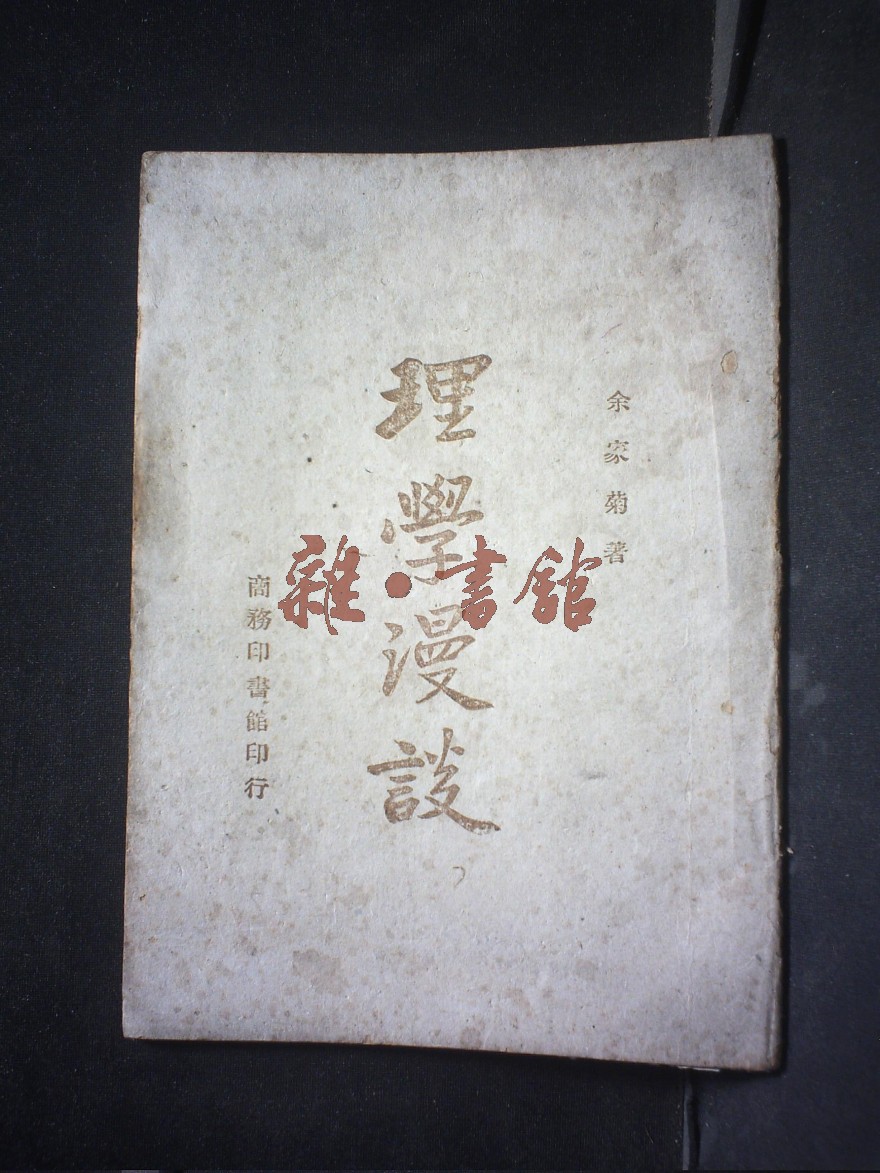 余家菊著
理學漫談
商務印書館印行
雜·書館